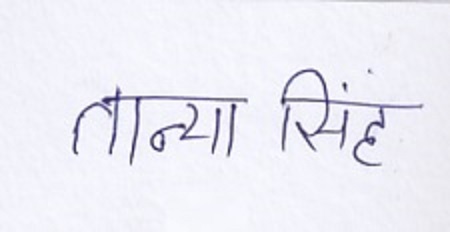 तान्या सिंह